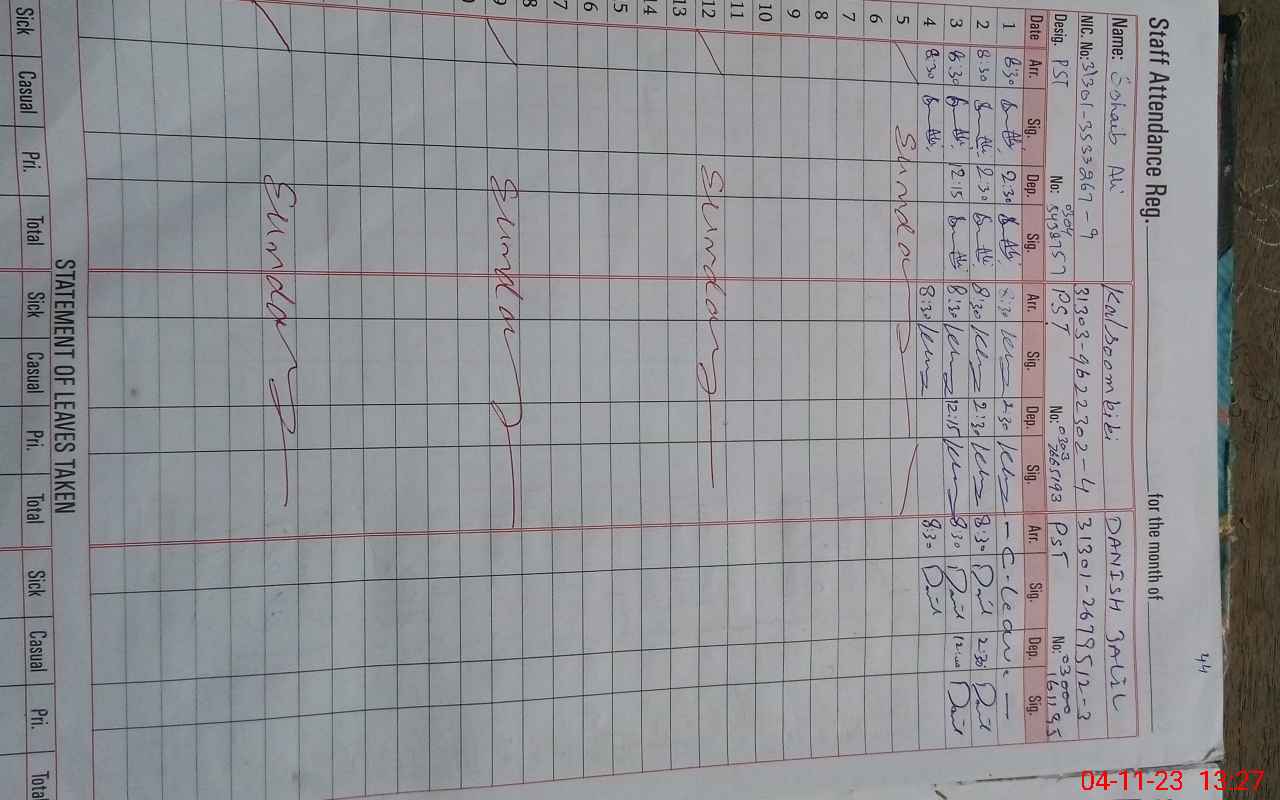 44
Staff Attendance Reg. for the month of
Name: Sohaib Ali Kalsoom bibi DANISH JALIL
NIC. No. 31301-3533267-9 31303-9622302-4 31301-2679512-3
Desig. PST No: 0304 5438757 PST No: 0303 7665193 PST No: 03000 161195
Date Arr. Sig. Dep. Sig. Arr. Sig. Dep. Sig. Arr. Sig. Dep. Sig.
1 8:30 2:30 8:30 2:30 — C-leave —
2 8:30 2:30 8:30 2:30 8:30 2:30
3 8:30 12:15 8:30 12:15 8:30 12:00
4 8:30 8:30 8:30
5 Sunday
6
7
8
9
10
11
12 Sunday
13
14
15
16
17
18
19 Sunday
Sunday
STATEMENT OF LEAVES TAKEN
Sick Casual Pri. Total Sick Casual Pri. Total Sick Casual Pri. Total
04-11-23 13:27